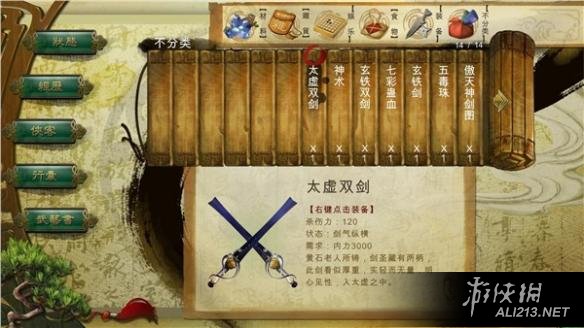 狀態
經歷
俠客
行囊
武學書
不分类
材料
藏質
娱乐
食物
装备
不分类
14 / 14
太虚双剑 X 1
神术 X 1
玄铁双剑 X 1
七彩蛊血 X 1
玄铁剑 X 1
五毒珠 X 1
傲天神剑图 X 1
太虚双剑
【右键点击装备】
杀伤力：120
状态：剑气纵横
需求：内力3000
黄石老人所铸，剑圣藏有两柄
此剑看似厚重，实轻而无量，明
心见性，入太虚之中。
游侠網
ALI213.NET